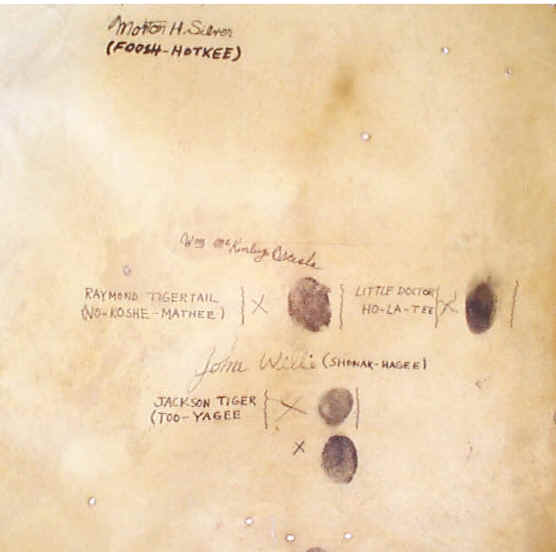 Morton H. Silver
(FOOSH-HOTKEE)
Wm McKinley Osceola
RAYMOND TIGERTAIL } X { LITTLE DOCTOR { X }
(NO-KOSHE-MATHEE) HO-LA-TEE
John Willie (SHONAK-HAGEE)
JACKSON TIGER { X }
(TOO-YAGEE
X